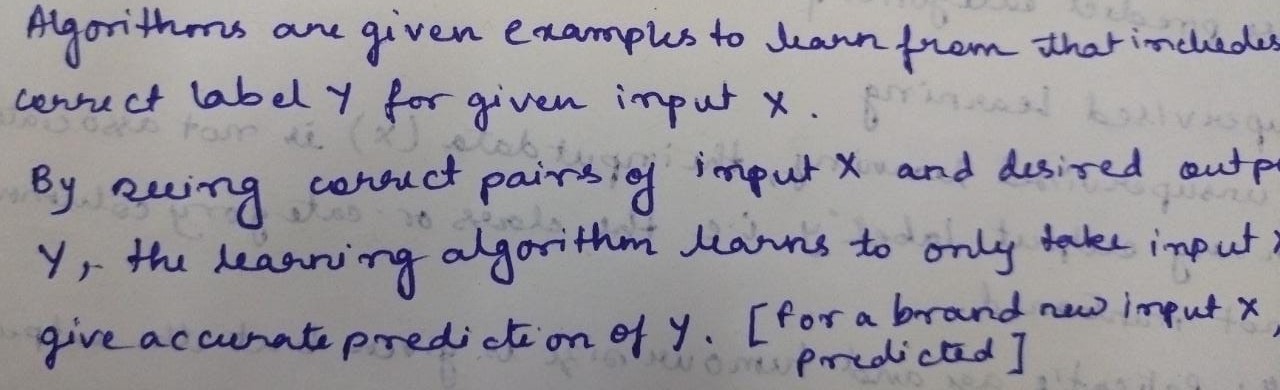 Algorithms are given examples to learn from that includes
correct label Y for given input X.
By seeing correct pairs of input X and desired outp
Y, the learning algorithm learns to only take input
give accurate prediction of Y. [for a brand new input X
predicted]